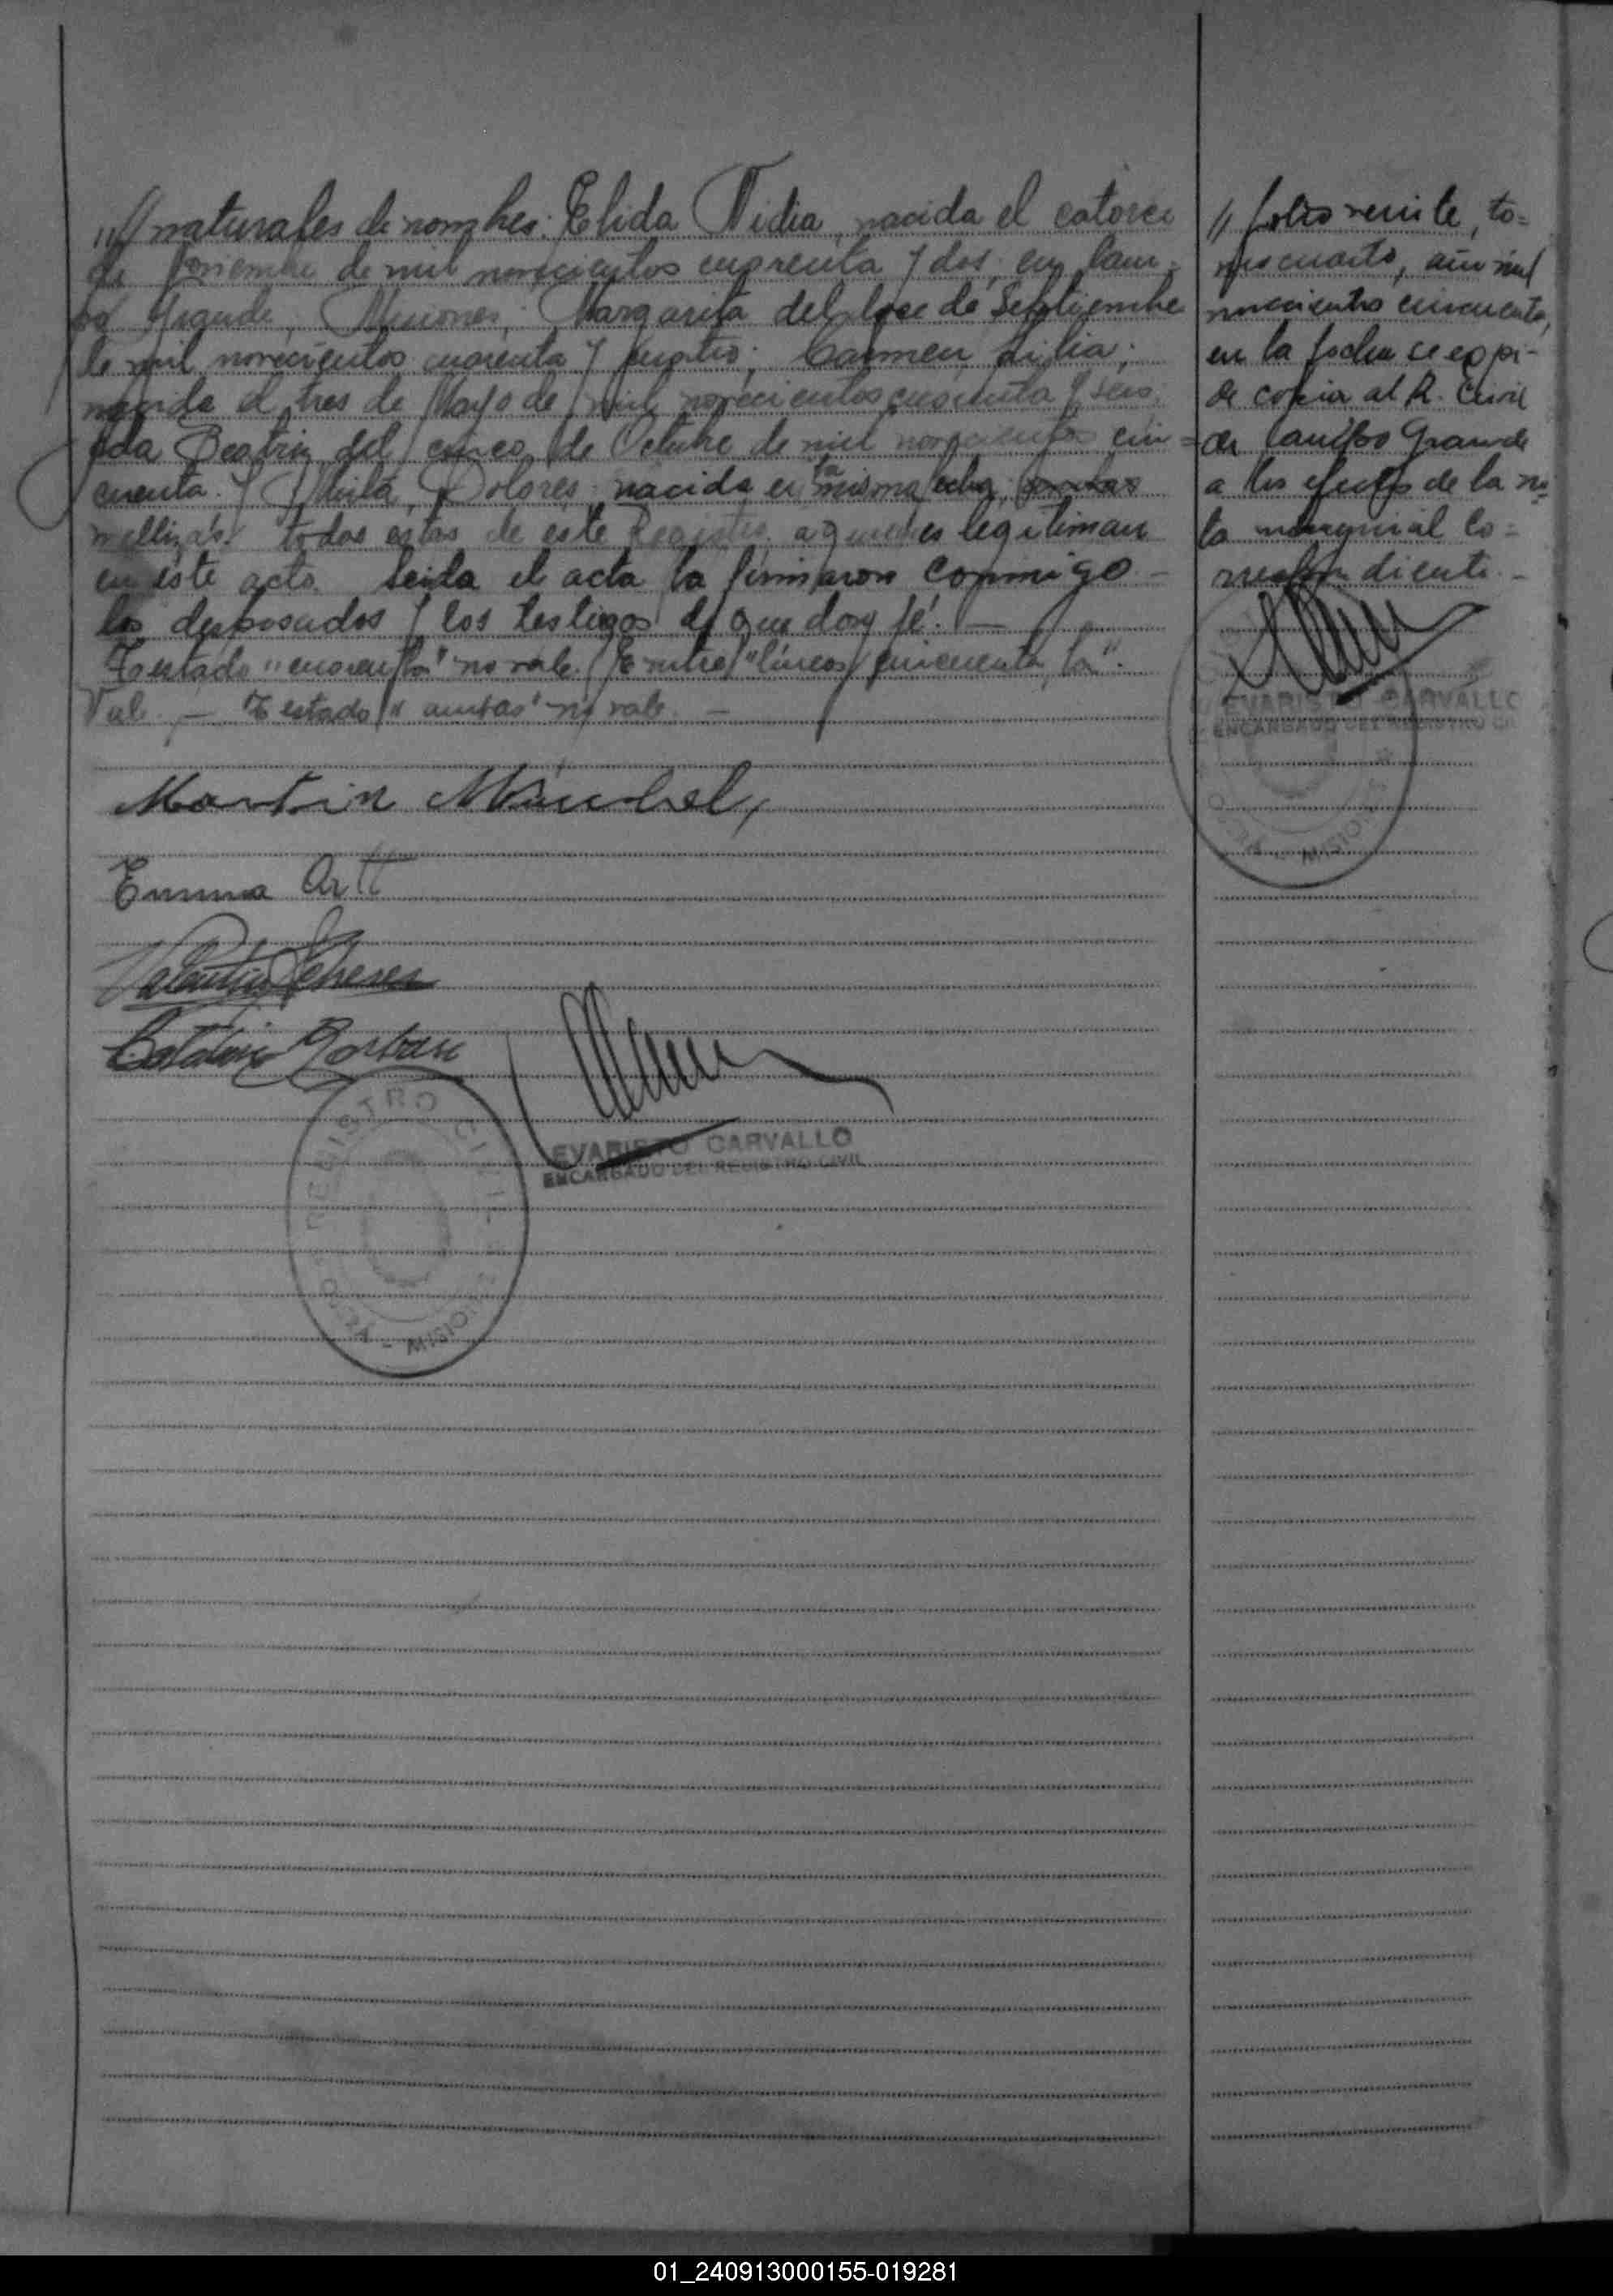 naturales de nombres: Elida Nidia, nacida el catorce
de Noviembre de mil novecientos cuarenta y dos, en Cam-
po Grande, Misiones; Margarita del doce de Septiembre
de mil novecientos cuarenta y cuatro; Carmen Lilia,
nacida el tres de Mayo de mil novecientos cuarenta y seis;
Beatriz del cinco de Octubre de mil novecientos cin=
cuenta. y Dolores nacida en la misma fecha
mellizas. todas estas de este Registro a quienes legitiman
en este acto. Leida el acta la firmaron conmigo -
los desposados y los testigos de que doy fé. -
Testado "cuarenta" no vale. Entre "lineas cincuenta, la".
Vale. - Testado "ambas" no vale. -
Martin
Emma Artt
Valentin
EVARISTO CARVALLO
ENCARGADO DEL REGISTRO CIVIL
REGISTRO CIVIL
MISIONES
// folio veinte, to=
mo cuarto, año mil
novecientos cincuenta,
en la fecha se expi-
de copia al R. Civil
de Campo Grande
a los efectos de la no=
ta marginal co=
rrespondiente. -
EVARISTO CARVALLO
ENCARGADO DEL REGISTRO CI
MISIONES
01_240913000155-019281